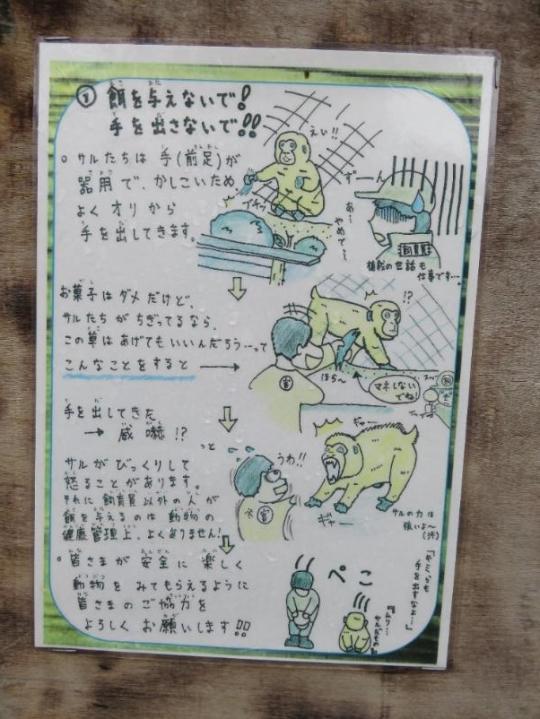 ① 餌を与えないで!
手を出さないで!!
サルたちは 手(前足)が
器用で、かしこいため
よく オリ から
手を出してきます。
えい!!
ブチッ
ずーん
あ…
やめて…
植栽の世話も
仕事です…。
お菓子はダメだけど、
サルたちがちぎってるなら、
この草はあげてもいいんだろう…って
こんなことをすると →
!?
ほら〜
マネしない
でね!
手を出してきた
→ 威嚇!?
っと
サルがびっくりして
怒ることがあります。
それに飼育員以外の人が
餌を与えるのは動物の
健康管理上、よくありません!
うわ!!
ギャー
ギャー
サルの力は
強いよ〜
(汗)
皆さまが安全に楽しく
動物をみてもらえるように
皆さまのご協力を
よろしくお願いします!!
ぺこ
手を出すなよ…」